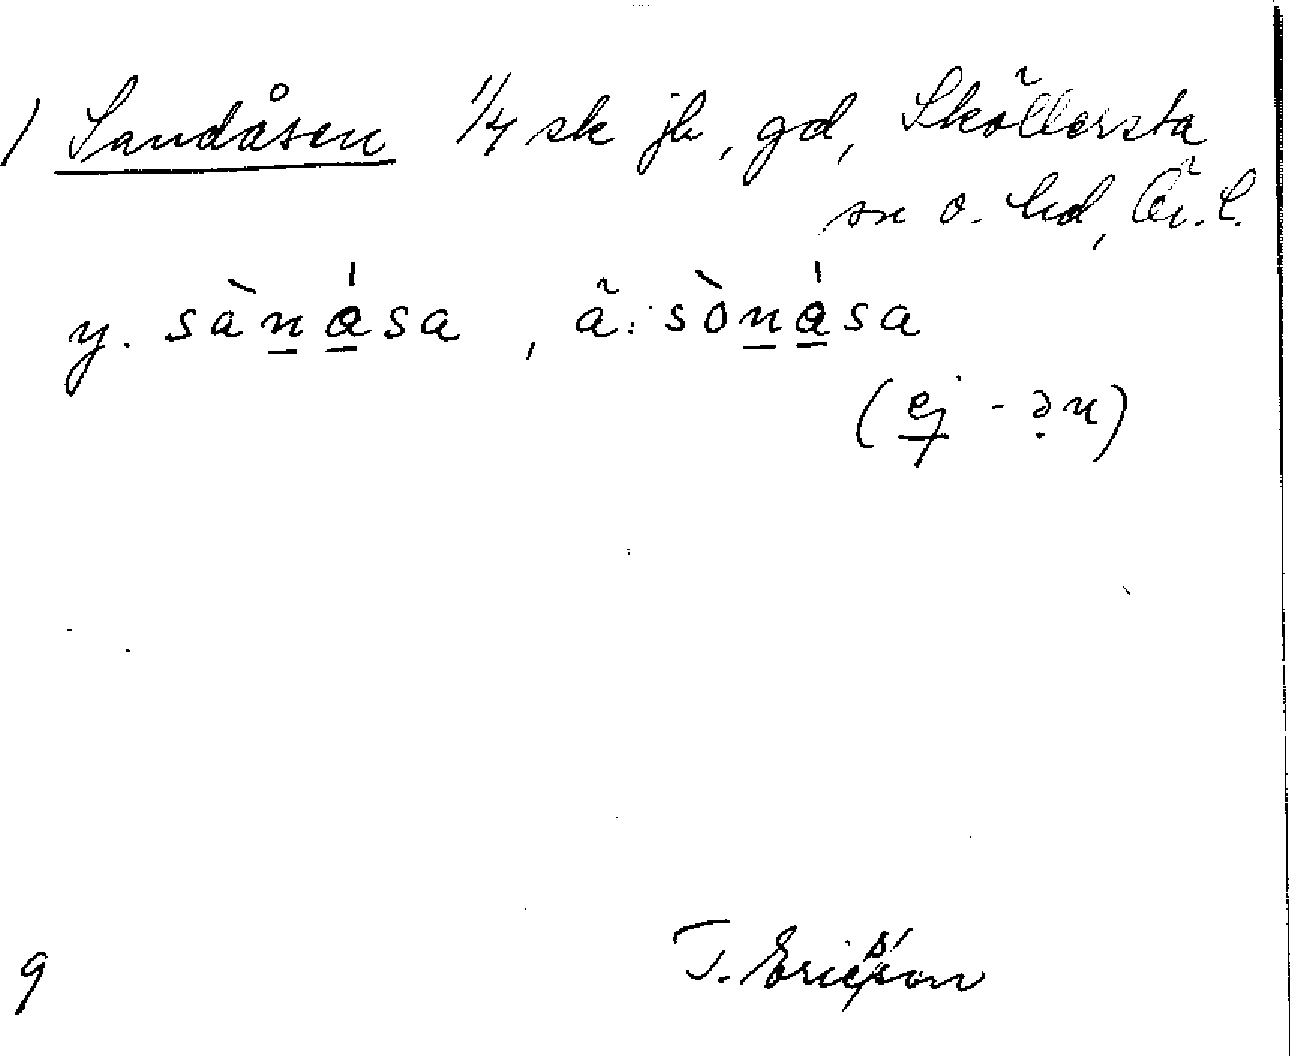 / Sandåsen 1/4 sk jb, gd, Sköllersta
sn o. hd, Ör. l.
y. sàn̲á̲sa, ä: sòn̲á̲sa
(ej - ə̣n)
9 T. Ericsson